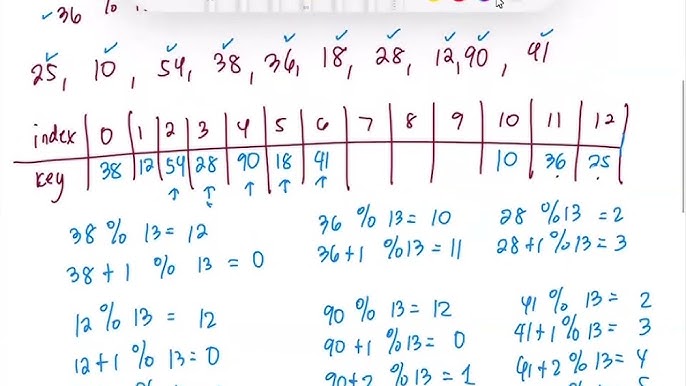 36 %
25, 10, 54, 38, 36, 18, 28, 12, 90, 41
index 0 1 2 3 4 5 6 7 8 9 10 11 12
key 38 12 54 28 90 18 41 10 36 25
38 % 13 = 12
38 + 1 % 13 = 0
12 % 13 = 12
12 + 1 % 13 = 0
36 % 13 = 10
36 + 1 % 13 = 11
90 % 13 = 12
90 + 1 % 13 = 0
90 + 2 % 13 = 1
28 % 13 = 2
28 + 1 % 13 = 3
41 % 13 = 2
41 + 1 % 13 = 3
41 + 2 % 13 = 4